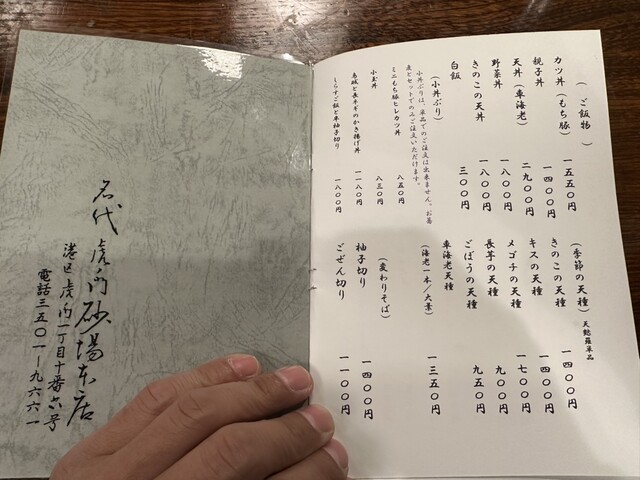 (ご飯物)
カツ丼(もち豚) 一五五〇円
親子丼 一四〇〇円
天丼(車海老) 二九〇〇円
野菜丼 一八〇〇円
きのこの天丼 一八〇〇円
白飯 三〇〇円
(小丼ぶり)
小丼ぶりは、単品でのご注文は出来ません。お蕎
麦とセットでのみご注文いただけます。
ミニもち豚ヒレカツ丼 八五〇円
小玉丼 八三〇円
烏賊と長ネギのかき揚げ丼 一一八〇円
しらすご飯と半柚子切り 一八〇〇円
(季節の天種) 天麩羅単品
きのこの天種 一四〇〇円
キスの天種 一四〇〇円
メゴチの天種 一七〇〇円
長芋の天種 九〇〇円
ごぼうの天種 九五〇円
車海老天種 一三五〇円
(海老一本/大葉)
(変わりそば)
柚子切り 一四〇〇円
ごぜん切り 一一〇〇円
名代 虎ノ門 砂場本店
港区虎ノ門一丁目十番六号
電話三五〇一─九六六一